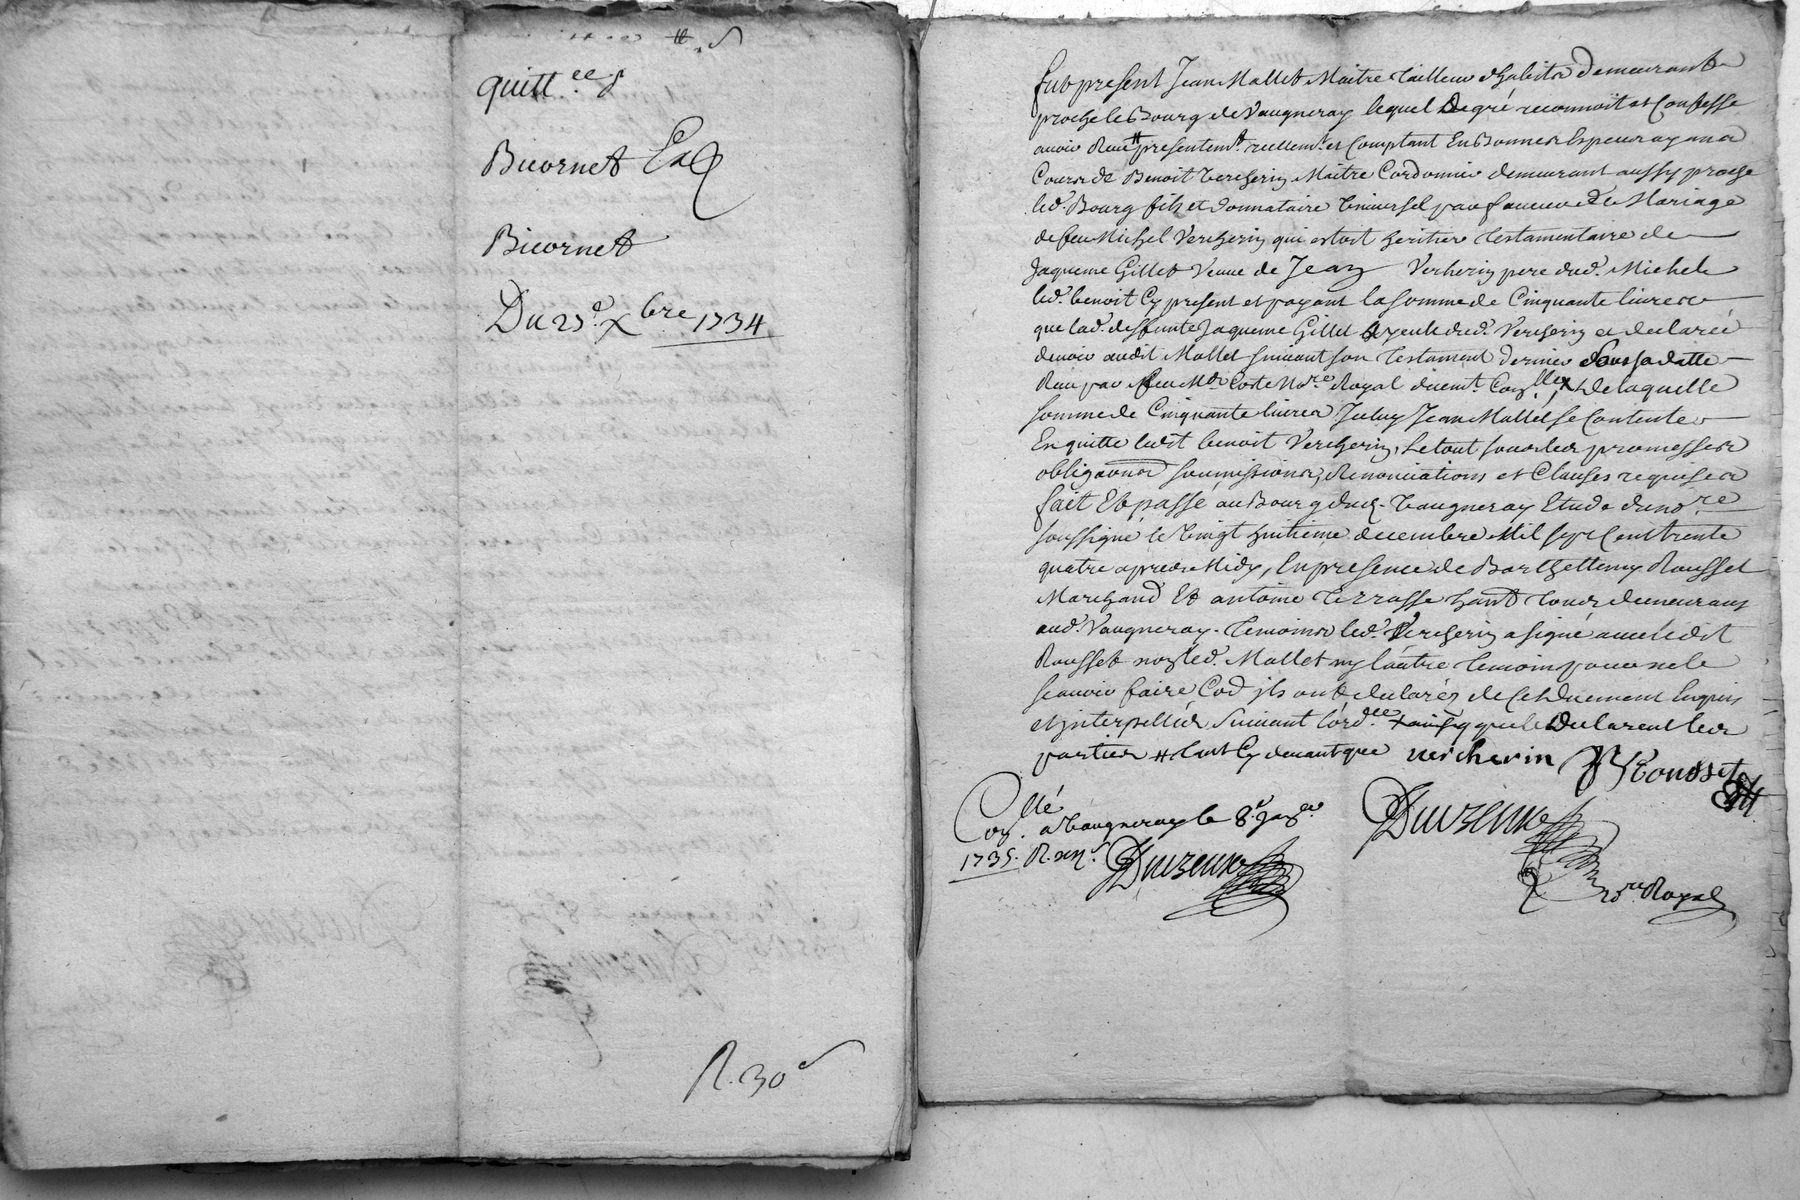 quitt.ce
Bicornet
Bicornet
Du 27.e xbre 1734
R. 30 s
fut present Jean Mallet Maitre Tailleur d'habits demeurant
proche le Bourg de Vaugneray lequel de gré reconnoit et Confesse
avoir Receu presentem.t reellem.t et Comptant En Bonnes Especes ayans
Cours de Benoit Vercherin Maitre Cordonnier demeurant aussy proche
led. Bourg fils et donnataire Universel par faveur de Mariage
de feu Michel Vercherin qui estoit heritier Testamentaire de
Jaqueme Gillet Veuve de Jean Verherin pere dud. Michel
led. benoit Cy present et payant la somme de Cinquante livres
que lad. deffunte Jaqueme Gillet ayeule dud. Vercherin a declarée
devoir audit Mallet suivant son Testament dernier sous sa datte
Receu par feu M.e Coste No.re Royal duemt. Con.llé De laquelle
somme de Cinquante livres Iceluy Jean Mallet se Contente
En quitte ledit benoit Vercherin, Le tout sous les promesses
obligaons soumissions, Renonciations et Clauses requises
fait Et passé au Bourg dud. Vaugneray Etude du no.re
soussigné le Vingt huitieme decembre Mil sept Cent trente
quatre apres Midy, En presence de Barthellemy Rousset
Marchand Et antoine Terrasse demeurans
aud. Vaugneray. Temoins led. Vercherin a signé avec ledit
Rousset non led. Mallet ny l'autre Temoin pour ne le
scavoir faire Co.e ils ont declaréz de Ce Duement Enquis
et interpelléz Suivant l'ord.ce que le Declarent les
parties # tant Cy devant que vercherin B Rousset
Duizeux
No.re Royal
Con.llé a Vaugneray le 8.e Jan.er
1735. R. Duizeux